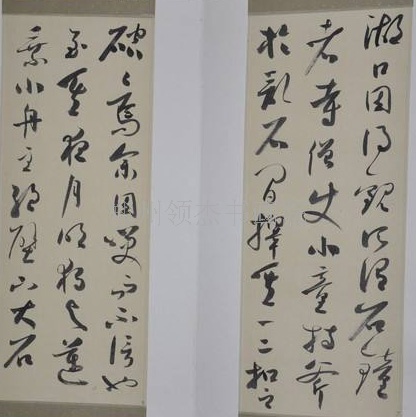 湖口因得觀所謂石鐘
者寺僧使小童持斧
於亂石间擇其一二扣之
硿〻焉余固笑而不信也
至其夜月明獨与邁
乘小舟至絕壁下大石
州领杰